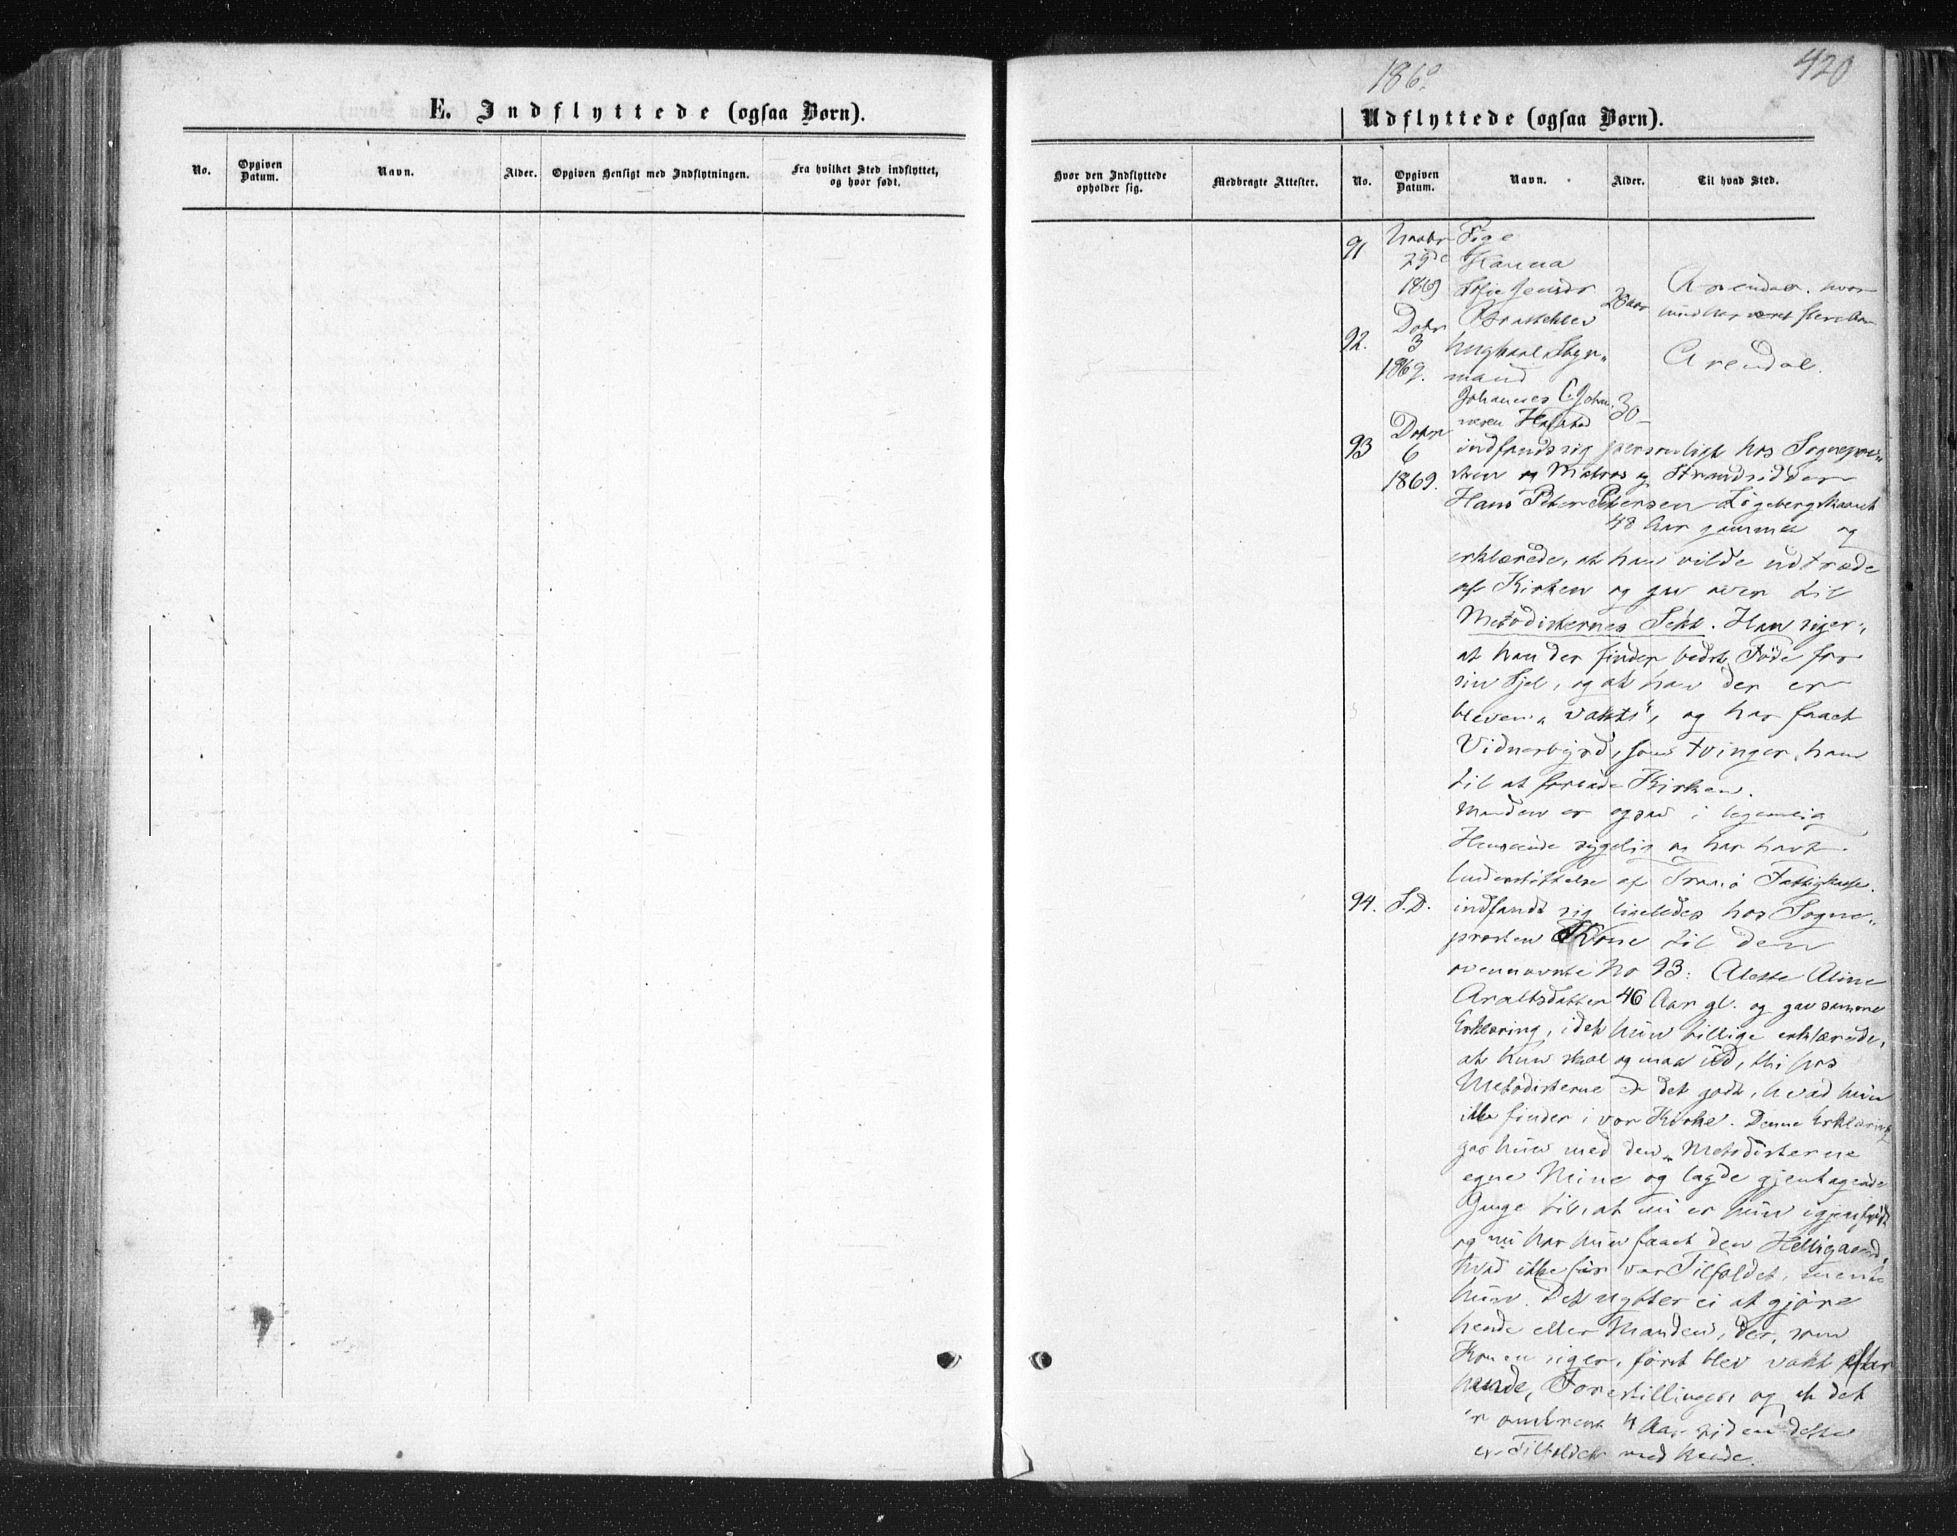 420
1869
E. Indflyttede (ogsaa Børn).
Udflyttede (ogsaa Børn).
No.
Opgiven Datum.
Navn.
Alder.
Opgiven Hensigt med Indflytningen.
Fra hvilket Sted indflyttet, og hvor født.
Hvor den Indflyttede opholder sig.
Medbragte Attester.
No.
Opgiven Datum.
Navn.
Alder.
Til hvad Sted.
91
29de
1869
Pige
Hanna
Sofie Jensdr
28 Aar
Arendal, hvor
hun har været flere Aar
92.
Decbr
3
1869.
Ungkarl, Styr-
mand
Johannes
30
Arendal.
93
Decbr
6
1869.
indfandt sig personligt hos Sognepræ-
sten Matros og Strandsidder
Hans Peter Petersen
48 Aar gammel og
erklærede, at han vilde udtræde
af Kirken og gav over til
Metodisternes Sekt. Han siger,
at han der finder bedst Føde for
sin Sjel, og at han der er
bleven „vakt", og har faaet
Vidnesbyrd, som tvinger ham
til at forlade Kirken.
Manden er ogsaa i legemlig
Henseende sygelig og har havt
Understøttelse af Fattigkasse.
94.
S.D.
indfandt sig ligeledes hos Sogne-
præsten Kone til den
ovennævnte No 93: Aline
Araltsdatter 46 Aar gl. og gav samme
Erklæring, idet hun tillige erklærede,
at hun skal og maa ud, thi hos
Metodisterne er det godt, hvad hun
ikke finder i vor Kirke. Denne Erklæring
gav hun med den Metodisterne
egne Mine og lagde gjentagende
Gange til, at nu er hun igjenfødt
og nu har hun faaet den Helligaand,
hvad ikke før var Tilfældet, mente
hun. Det nytter ei at gjøre
hende eller Manden, der, som
Konen siger, først blev vakt efter
hende, Forestillinger, og at det
er omtrent 4 Aar siden dette
er Tilfældet med hende.